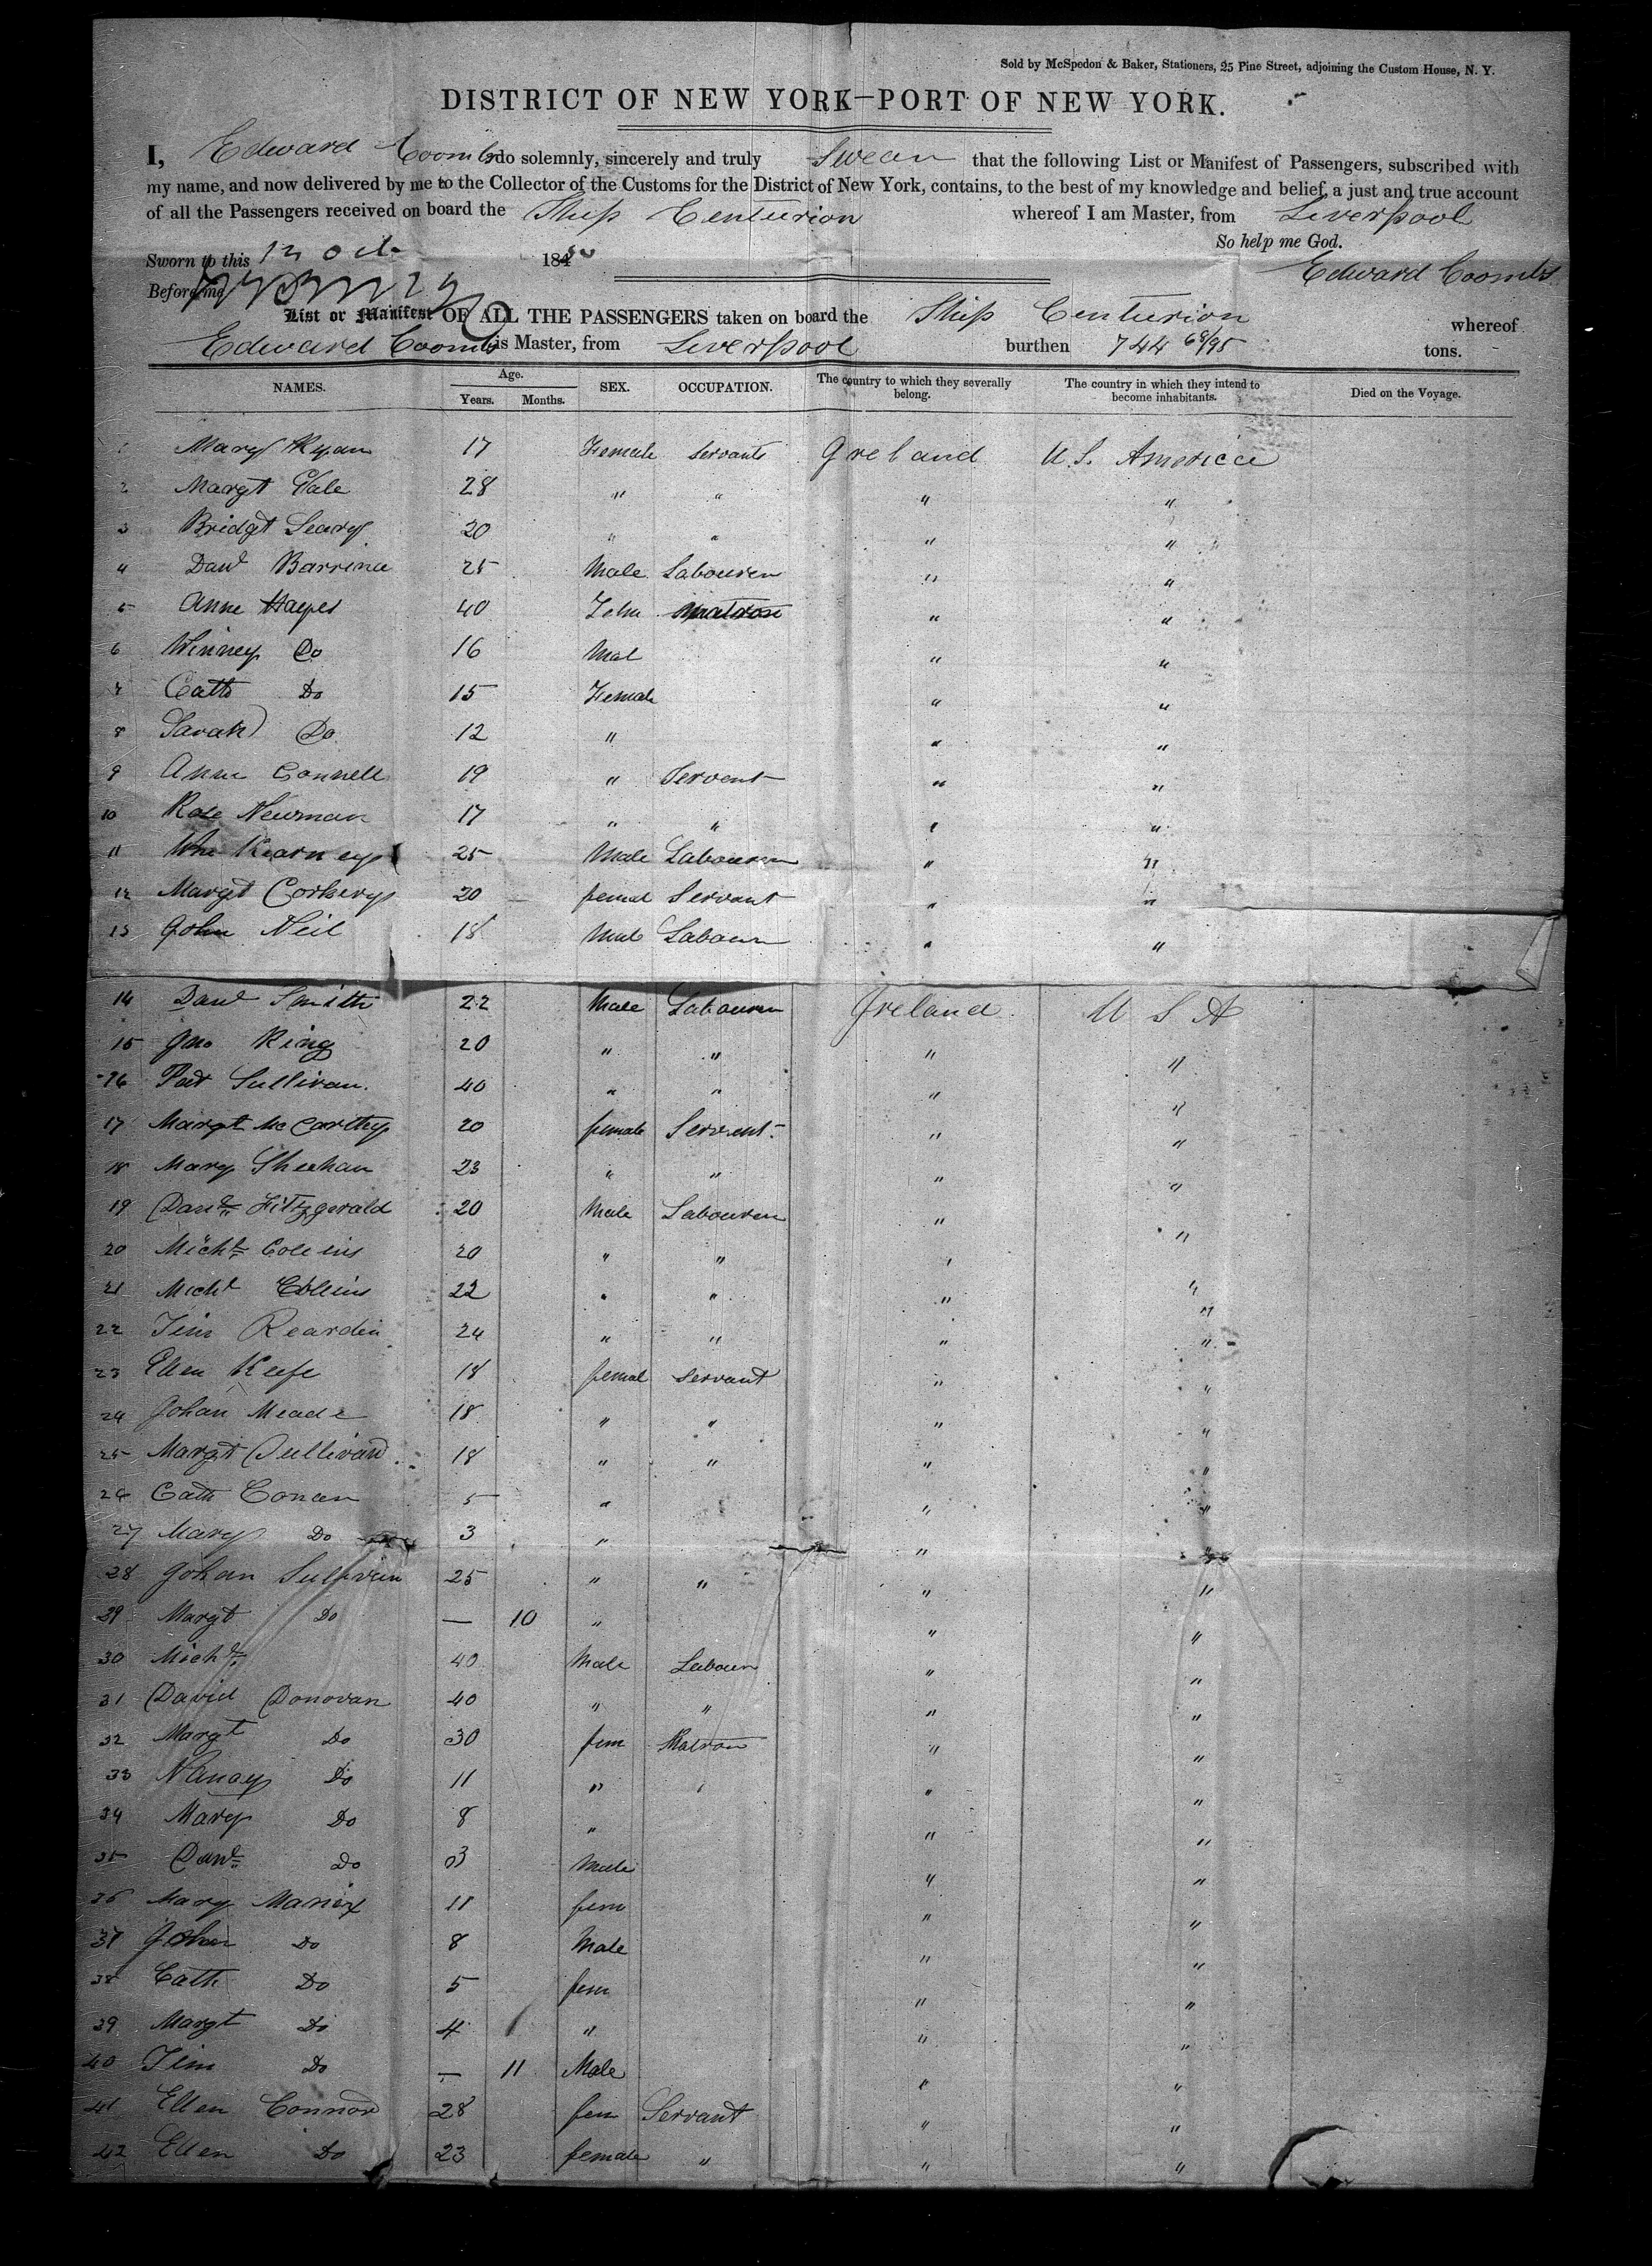 Sold by McSpedon & Baker, Stationers, 25 Pine Street, adjoining the Custom House, N. Y.
DISTRICT OF NEW YORK—PORT OF NEW YORK.
I, Edward Coombs do solemnly, sincerely and truly Swear that the following List or Manifest of Passengers, subscribed with
my name, and now delivered by me to the Collector of the Customs for the District of New York, contains, to the best of my knowledge and belief, a just and true account
of all the Passengers received on board the Ship Centurion whereof I am Master, from Liverpool
So help me God.
Sworn to this 12 Oct 1850
Edward Coombs
Before me
List or Manifest OF ALL THE PASSENGERS taken on board the Ship Centurion whereof
Edward Coombs is Master, from Liverpool burthen 744 68/95 tons.
NAMES. Age. Years. Months. SEX. OCCUPATION. The country to which they severally belong. The country in which they intend to become inhabitants. Died on the Voyage.
1 Mary Ryan 17 Female Servants Ireland U.S. America
2 Margt Gale 28 " " " "
3 Bridgt Leary 20 " " " "
4 Danl 25 Male Labourer " "
5 Anne Hayes 40 Fem Matron " "
6 Winney Do 16 Mal " "
7 Cath Do 15 Female " "
8 Sarah Do 12 " " "
9 Anne Connell 19 " Servent " "
10 Rose Newman 17 " " " "
11 Wm Kearney 25 Male Labourer " "
12 Margt Corkery 20 femal Servant " "
13 John Neil 18 Male Labourer " "
14 Danl Smith 22 Male Labourer Ireland U S A
15 Jno King 20 " " " "
16 Pat Sullivan. 40 " " " "
17 Margt McCarthy 20 female Servent. " "
18 Mary Sheehan 23 " " " "
19 Danl Fitzgerald 20 Male Labourer " "
20 Michl Collins 20 " " " "
21 Michl Collins 22 " " " "
22 Tim Reardin 24 " " " "
23 Ellen Keefe 18 femal Servant " "
24 Johan Meade 18 " " " "
25 Margt Sullivan 18 " " " "
26 Cath Conan 5 " " "
27 Mary Do 3 " " "
28 Johan Sullivan 25 " " " "
29 Margt Do — 10 " " "
30 Michl 40 Male Labour " "
31 David Donovan 40 " " " "
32 Margt Do 30 fem Matron " "
33 Nancy Do 11 " " " "
34 Mary Do 8 " " "
35 Danl Do 3 Male " "
36 Mary Manix 11 fem " "
37 John Do 8 Male " "
38 Cath Do 5 fem " "
39 Margt Do 4 " " "
40 Tim Do — 11 Male " "
41 Ellen Connor 28 fem Servant " "
42 Ellen Do 23 female " " "